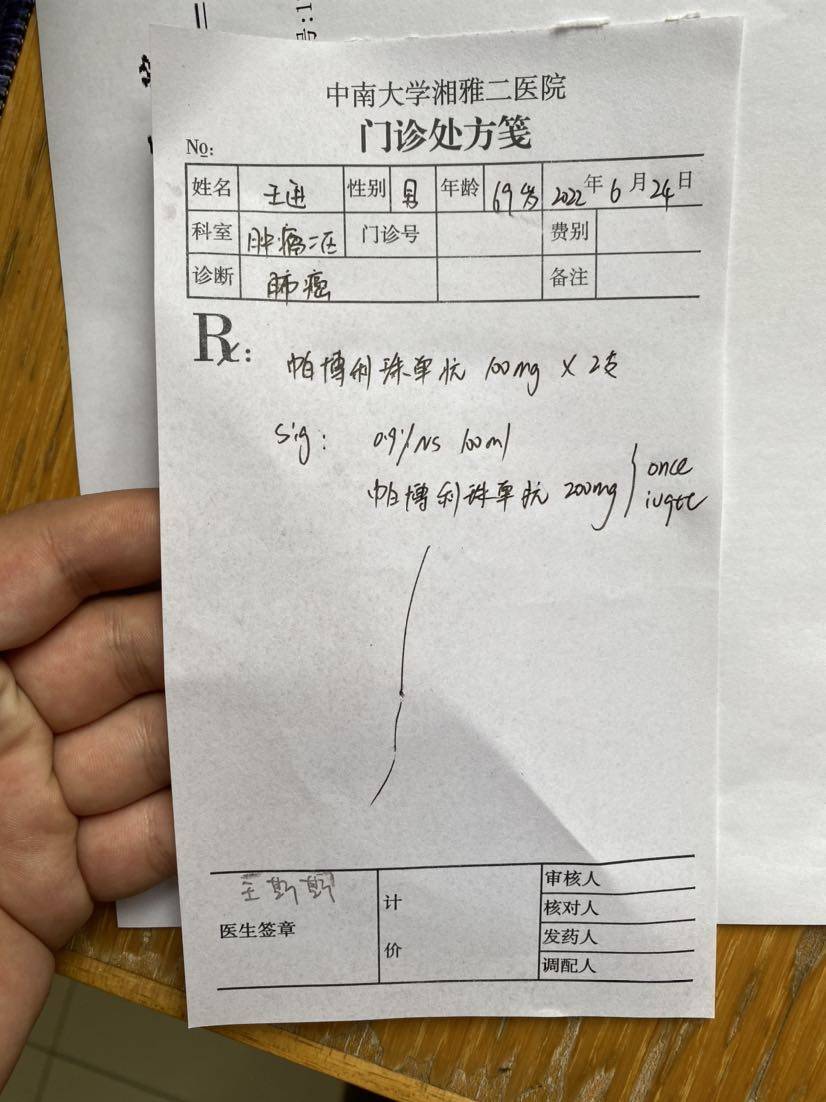 号:1
中南大学湘雅二医院
门诊处方笺
№:
姓名 王进 性别 男 年龄 69岁 2022年6月24日
科室 肿瘤二区 门诊号 费别
诊断 肺癌 备注
Rx:
帕博利珠单抗 100mg × 2支
Sig: 0.9%NS 100ml
帕博利珠单抗 200mg
once
ivgtt
王
医生签章
计
价
审核人
核对人
发药人
调配人